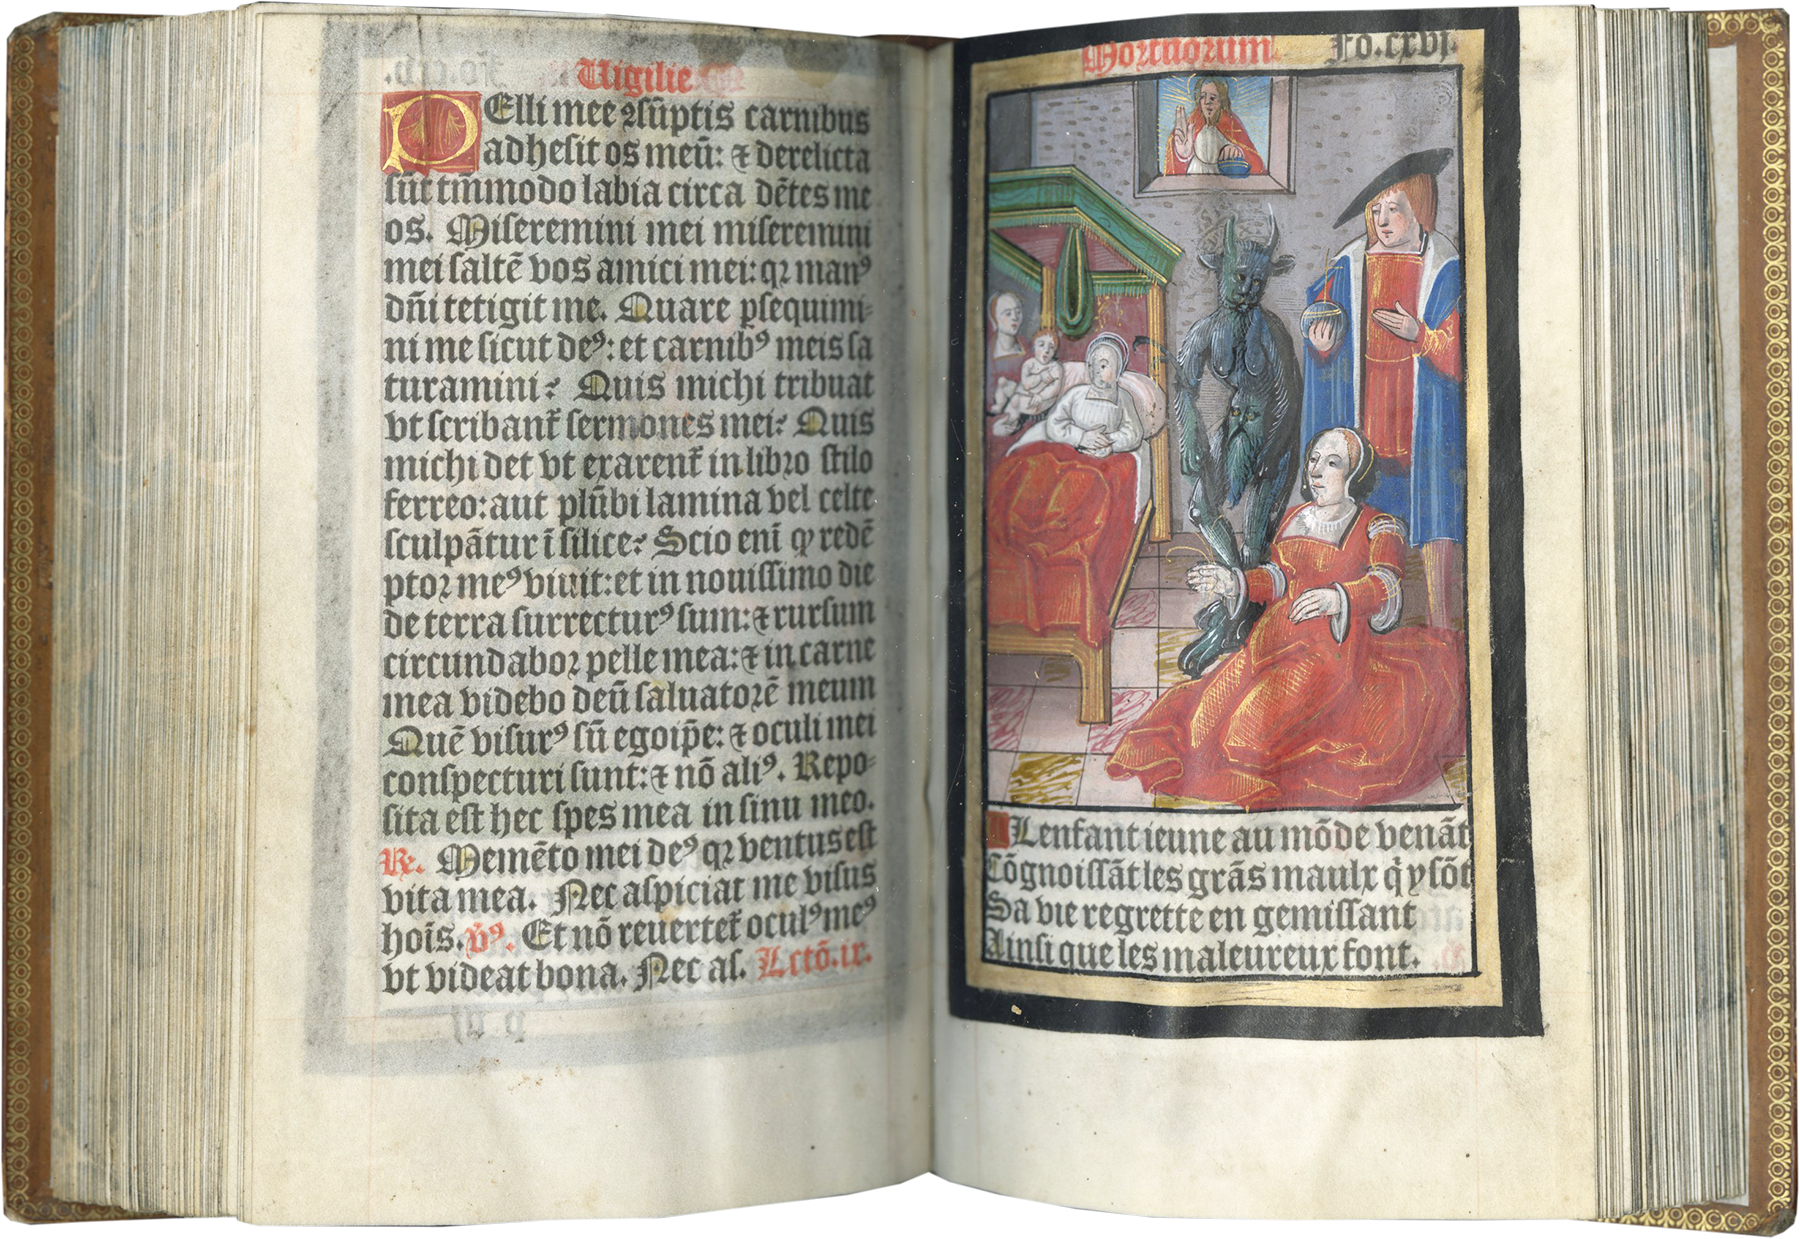 Uigilie
PElli mee ꝯsũptis carnibus
adhesit os meũ: ⁊ derelicta
sũt tm̃modo labia circa dẽtes me
os. Miseremini mei miseremini
mei saltẽ vos amici mei: qꝛ manꝰ
dñi tetigit me. Quare ꝑsequimi-
ni me sicut deꝰ: et carnibꝰ meis sa
turamini? Quis michi tribuat
vt scribant᷑ sermones mei? Quis
michi det vt exarent᷑ in libro stilo
ferreo: aut plũbi lamina vel celte
sculpãtur ĩ silice? Scio enĩ ꝙ redẽ
ptoꝛ meꝰ viuit: et in nouissimo die
de terra surrecturꝰ sum: ⁊ rursum
circundaboꝛ pelle mea: ⁊ in carne
mea videbo deũ saluatoꝛẽ meum
Quẽ visurꝰ sũ ego ip̃e: ⁊ oculi mei
conspecturi sunt: ⁊ nõ aliꝰ. Repo-
sita est hec spes mea in sinu meo.
℞. Memẽto mei deꝰ qꝛ ventus est
vita mea. Nec aspiciat me visus
hoĩs. ℣ꝰ. Et nõ reuertet᷑ oculꝰ meꝰ
vt videat bona. Nec as. Lctõ. ix.
Mortuorum. Fo.cxvj.
Lenfant ieune au mõde venãt
Cõgnoissãt les grãs maulx q̃ y sõt
Sa vie regrette en gemissant
Ainsi que les maleureux font.